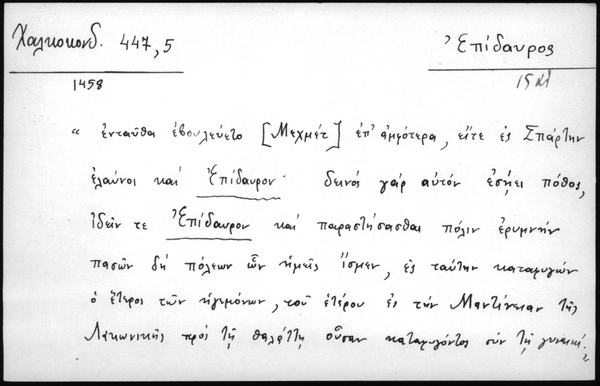 Χαλκοκονδ. 447,5
Ἐπίδαυρος
1458
"ἐνταῦθα ἐβουλεύετο [Μεχμέτ] ἐπ' ἀμφότερα, εἴτε ἐς Σπάρτην
ἐλαύνοι καί Ἐπίδαυρον· δεινός γάρ αὐτόν ἐσῄει πόθος,
ἰδεῖν τε Ἐπίδαυρον καί παραστήσασθαι πόλιν ἐρυμνήν
πασῶν δή πόλεων ὧν ἡμεῖς ἴσμεν, ἐς ταύτην καταφυγών
ὁ ἕτερος τῶν ἡγεμόνων, τοῦ ἑτέρου ἐς τήν Μαντίνειαν τῆς
Λακωνικῆς πρός τῇ θαλάττῃ οὖσαν καταφυγόντος σύν τῇ γυναικί."